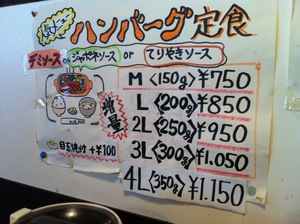 ハンバーグ定食
デミソース or ジャポネソース or てりやきソース
M〈150g〉¥750
L〈200g〉¥850
2L〈250g〉¥950
3L〈300g〉¥1.050
4L〈350g〉¥1.150
増量
目玉焼付 +¥100